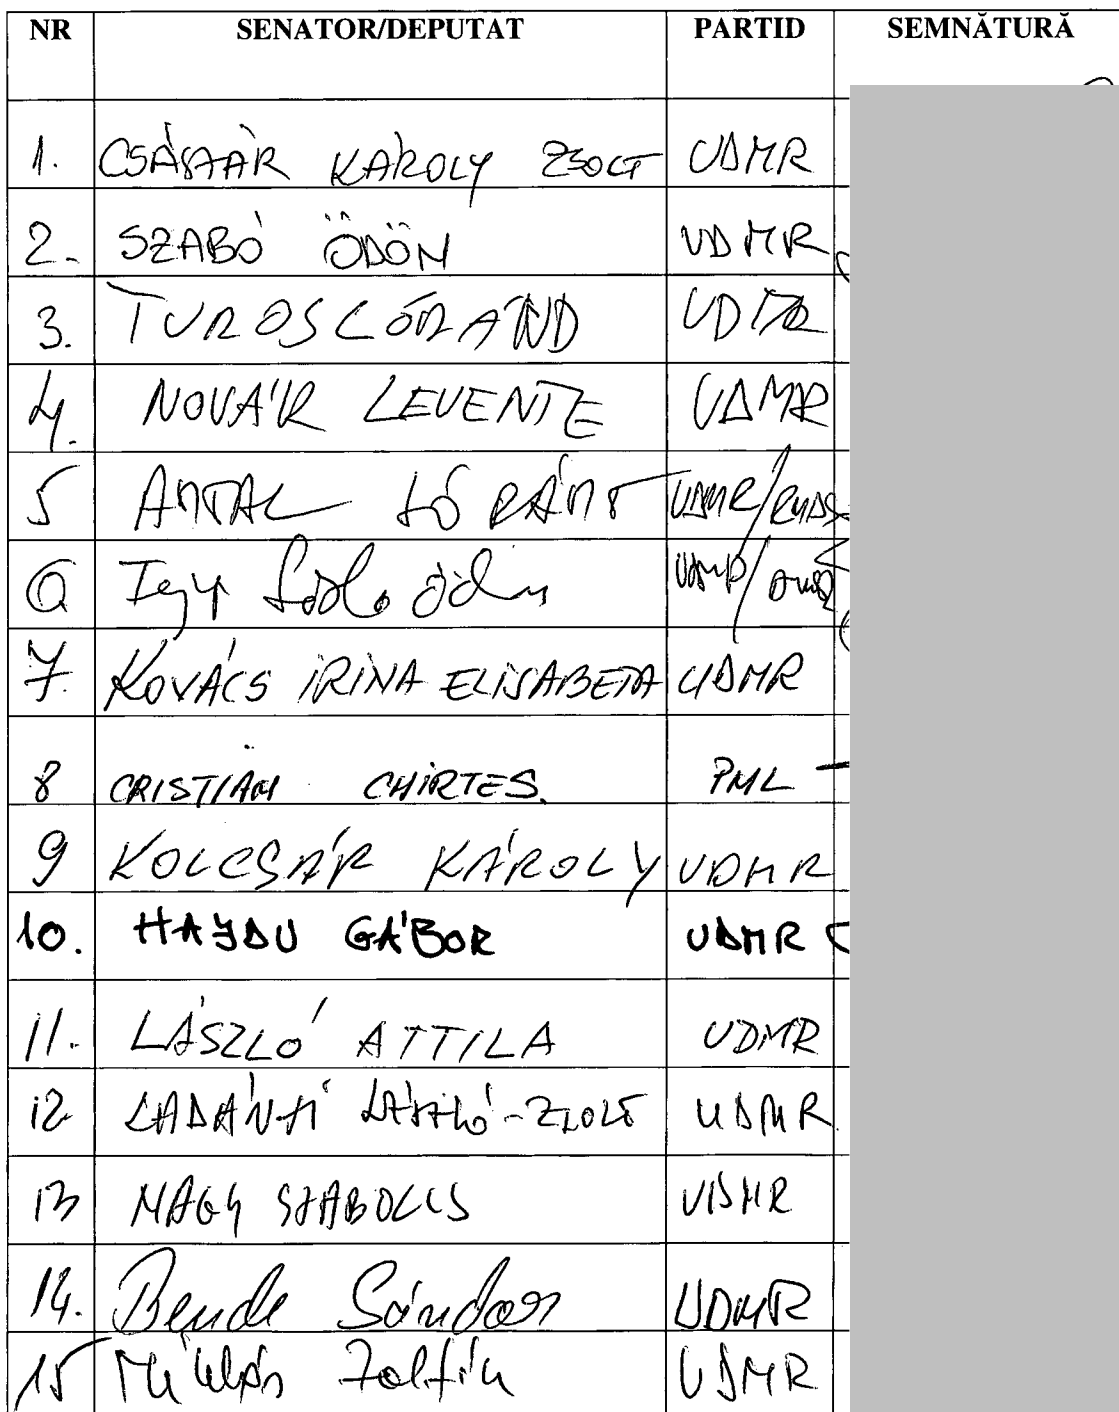 NR SENATOR/DEPUTAT PARTID SEMNĂTURĂ
1. CSÁSZÁR KÁROLY ZSOLT UDMR
2. SZABÓ ÖDÖN UDMR
3. TUROS LÓRÁND UDMR
4. NOVÁK LEVENTE UDMR
5 ANTAL LÓRÁNT UDMR/
6 ödön UDMR/
7. KOVÁCS IRINA ELISABETA UDMR
8 CRISTIAN CHIRTEȘ PNL
9 KOLCSÁR KÁROLY UDMR
10. HAJDU GÁBOR UDMR
11. LÁSZLÓ ATTILA UDMR
12 LADÁNYI LÁSZLÓ-ZSOLT UDMR
13 NAGY SZABOLCS UDMR
14. Bende Sándor UDMR
15 Miklós Zoltán UDMR